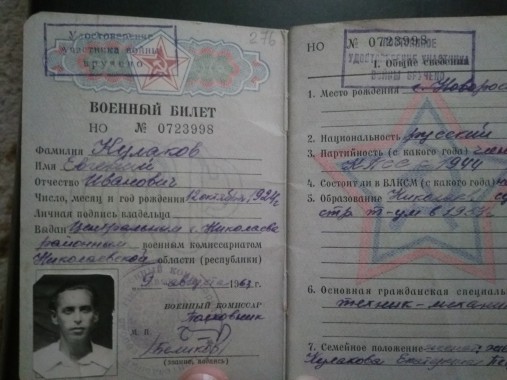 Удостоверение
участника войны
вручено
276
ВОЕННЫЙ БИЛЕТ
НО № 0723998
Фамилия Кулаков
Имя Евгений
Отчество Иванович
Число, месяц и год рождения 12 октября 1924 г.
Личная подпись владельца
Выдан Центральным г. Николаева
районным военным комиссариатом
Николаевской области (республики)
9 августа 1963 г.
ВОЕННЫЙ КОМИССАР
Полковник
М. П.
(звание, подпись)
НО № 0723998
УДОСТОВЕРЕНИЕ УЧАСТНИКА
ВОЙНЫ ВРУЧЕНО
I. Общие сведения
1. Место рождения г. Новорос
2. Национальность русский
3. Партийность (с какого года) член
КПСС с 1944
4. Состоит ли в ВЛКСМ (с какого года)
5. Образование Николаев. су
стр. т-ум в 195
6. Основная гражданская специаль
техник-механи
7. Семейное положение
Кулакова Екатерина